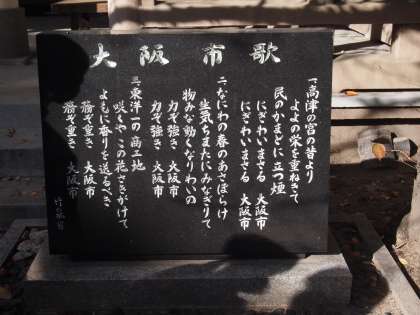 大阪市歌
一、高津の宮の昔より
よよの栄を重ねきて
民のかまどに立つ煙
にぎわいまさる 大阪市
にぎわいまさる 大阪市
二、なにわの春のあさぼらけ
生気ちまたにみなぎりて
物みな動くなりわいの
力ぞ強き 大阪市
力ぞ強き 大阪市
三、東洋一の商工地
咲くやこの花さきがけて
よもに香りを送るべき
務ぞ重き 大阪市
務ぞ重き 大阪市